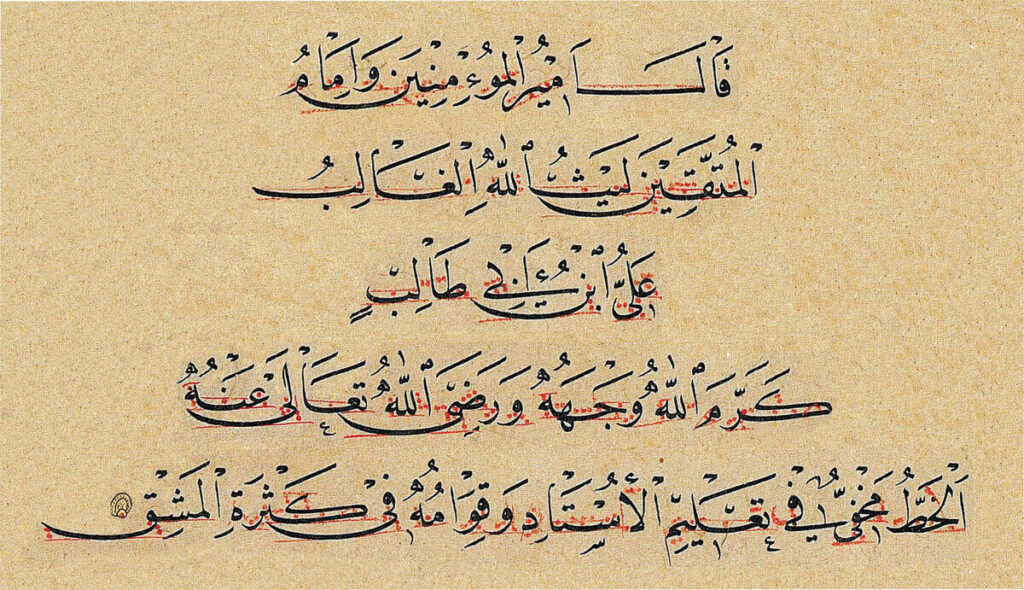 قَالَ اَمِيْرُ الْمُوءْمِنِيْنَ وَاِمَامُ
الْمُتَّقِيْنَ لَيْثُ اللّٰهِ الْغَالِبُ
عَلِىُّ ابْنُ اَبِى طَالِبٍ
كَرَّمَ اللّٰهُ وَجْهَهُ وَرَضِىَ اللّٰهُ تَعَالٰى عَنْهُ
اَلْخَطُّ مَخْفِىٌّ فِى تَعْلِيْمِ الْأُسْتَادِ وَقِوَامُهُ فِىْ كَثْرَةِ الْمَشْقِ